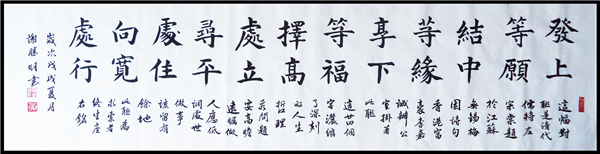 發上
等願
結中
等緣
享下
等福
擇高
處立
尋平
處住
向寬
處行
這幅對
聯是清代
儒將左
宗棠題
於江蘇
無錫梅
園詩句
香港富
豪李嘉
誠辦公
室掛著
此聯
這廿四個
字濃縮
了深刻
的人生
哲理
看問題
要高瞻
遠矚做
人應低
調處世
做事
該留有
餘地
此聯為
求索者
終生座
右銘
歲次戊戌夏月
謝勝明書